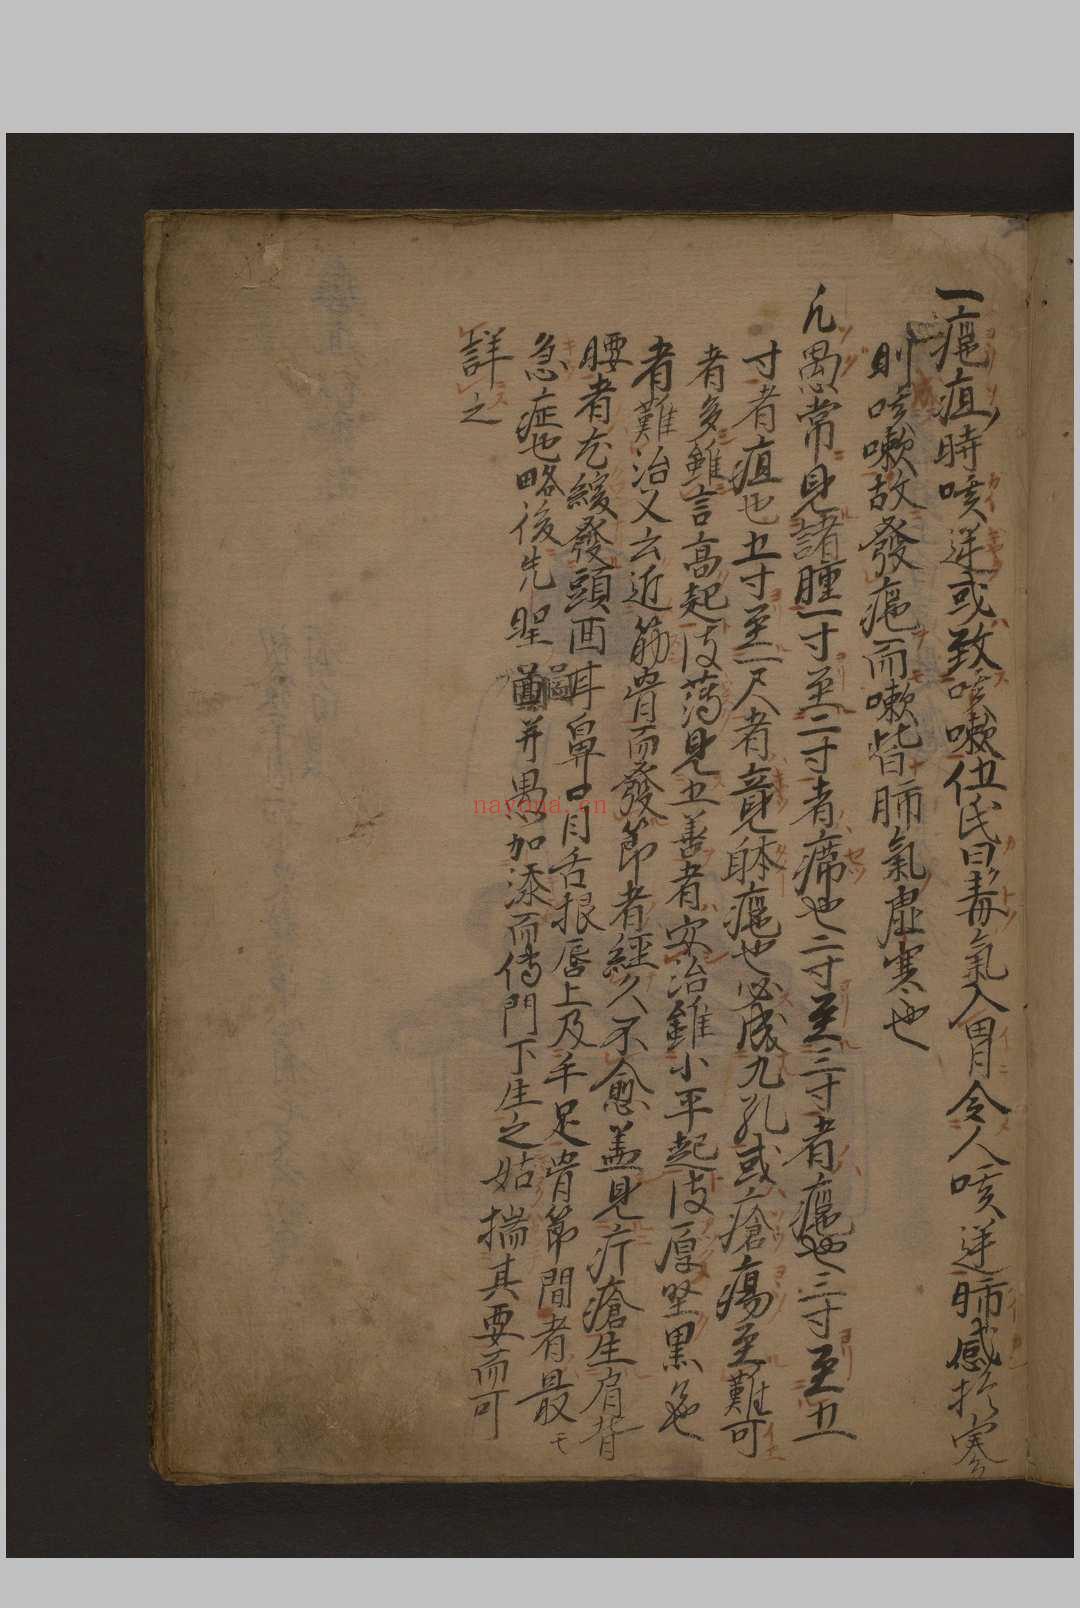 一癰疽時咳逆或致咳嗽伍氏曰毒氣入胃令人咳逆肺感於寒
則咳嗽故發癰而嗽皆肺氣虛寒也
凡愚常見諸腫一寸至二寸者癤也二寸至三寸者癰也三寸至五
寸者疽也五寸至一尺者竟躰癰也必成九孔或瘡瘍至難可
者多雖言高起皮薄見五善者安治雖小平起皮厚堅黑色
者難治又云近筋骨而發節者經久不愈蓋見疔瘡生肩背
腰者尤緩發頭面耳鼻口目舌根唇上及手足骨節間者最モ
急症也略後先聖圖并愚加添而傳門下生之姑揣其要而可
詳之
nayona.cn